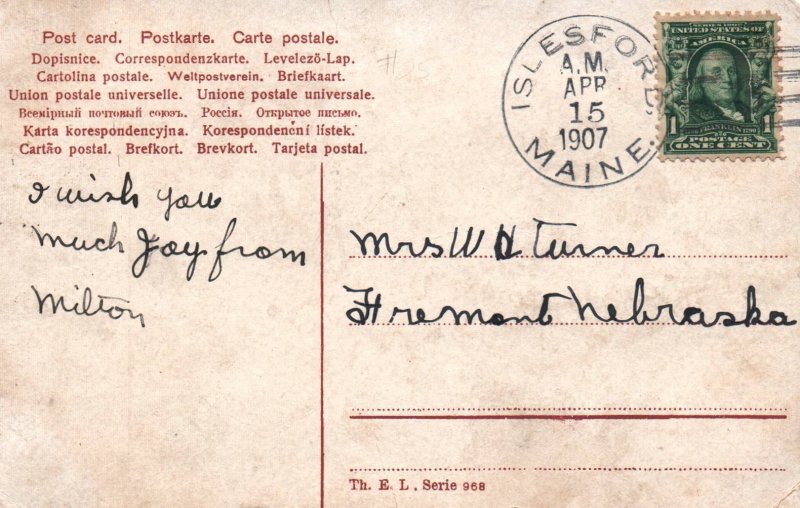 Post card. Postkarte. Carte postale.
Dopisnice. Correspondenzkarte. Levelezö-Lap.
Cartolina postale. Weltpostverein. Briefkaart.
Union postale universelle. Unione postale universale.
Всемірный почтовый союзъ. Россія. Открытое письмо.
Karta korespondencyjna. Korespondenční lístek.
Cartão postal. Brefkort. Brevkort. Tarjeta postal.
ISLESFORD,
A.M.
APR
15
1907
MAINE.
SERIES 1902
UNITED STATES OF
AMERICA
FRANKLIN
1 POSTAGE 1
ONE CENT
I wish you
much Joy from
Milton
Mrs W H Turner
Fremont Nebraska
Th. E. L. Serie 968